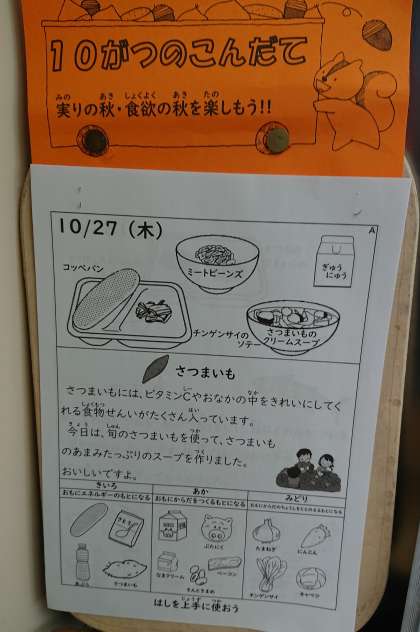 10がつのこんだて
実りの秋・食欲の秋を楽しもう!!
10/27（木）
A
コッペパン
ミートビーンズ
ぎゅうにゅう
チンゲンサイのソテー
さつまいものクリームスープ
さつまいも
さつまいもには、ビタミンCやおなかの中をきれいにしてく
れる食物せんいがたくさん入っています。
今日は、旬のさつまいもを使って、さつまいも
のあまみたっぷりのスープを作りました。
おいしいですよ。
きいろ
おもにエネルギーのもとになる
あか
おもにからだをつくるもとになる
みどり
おもにからだのちょうしをととのえるもとになる
あぶら
さつまいも
ぶたにく
なまクリーム
ベーコン
たまねぎ
にんじん
チンゲンサイ
キャベツ
はしを上手に使おう